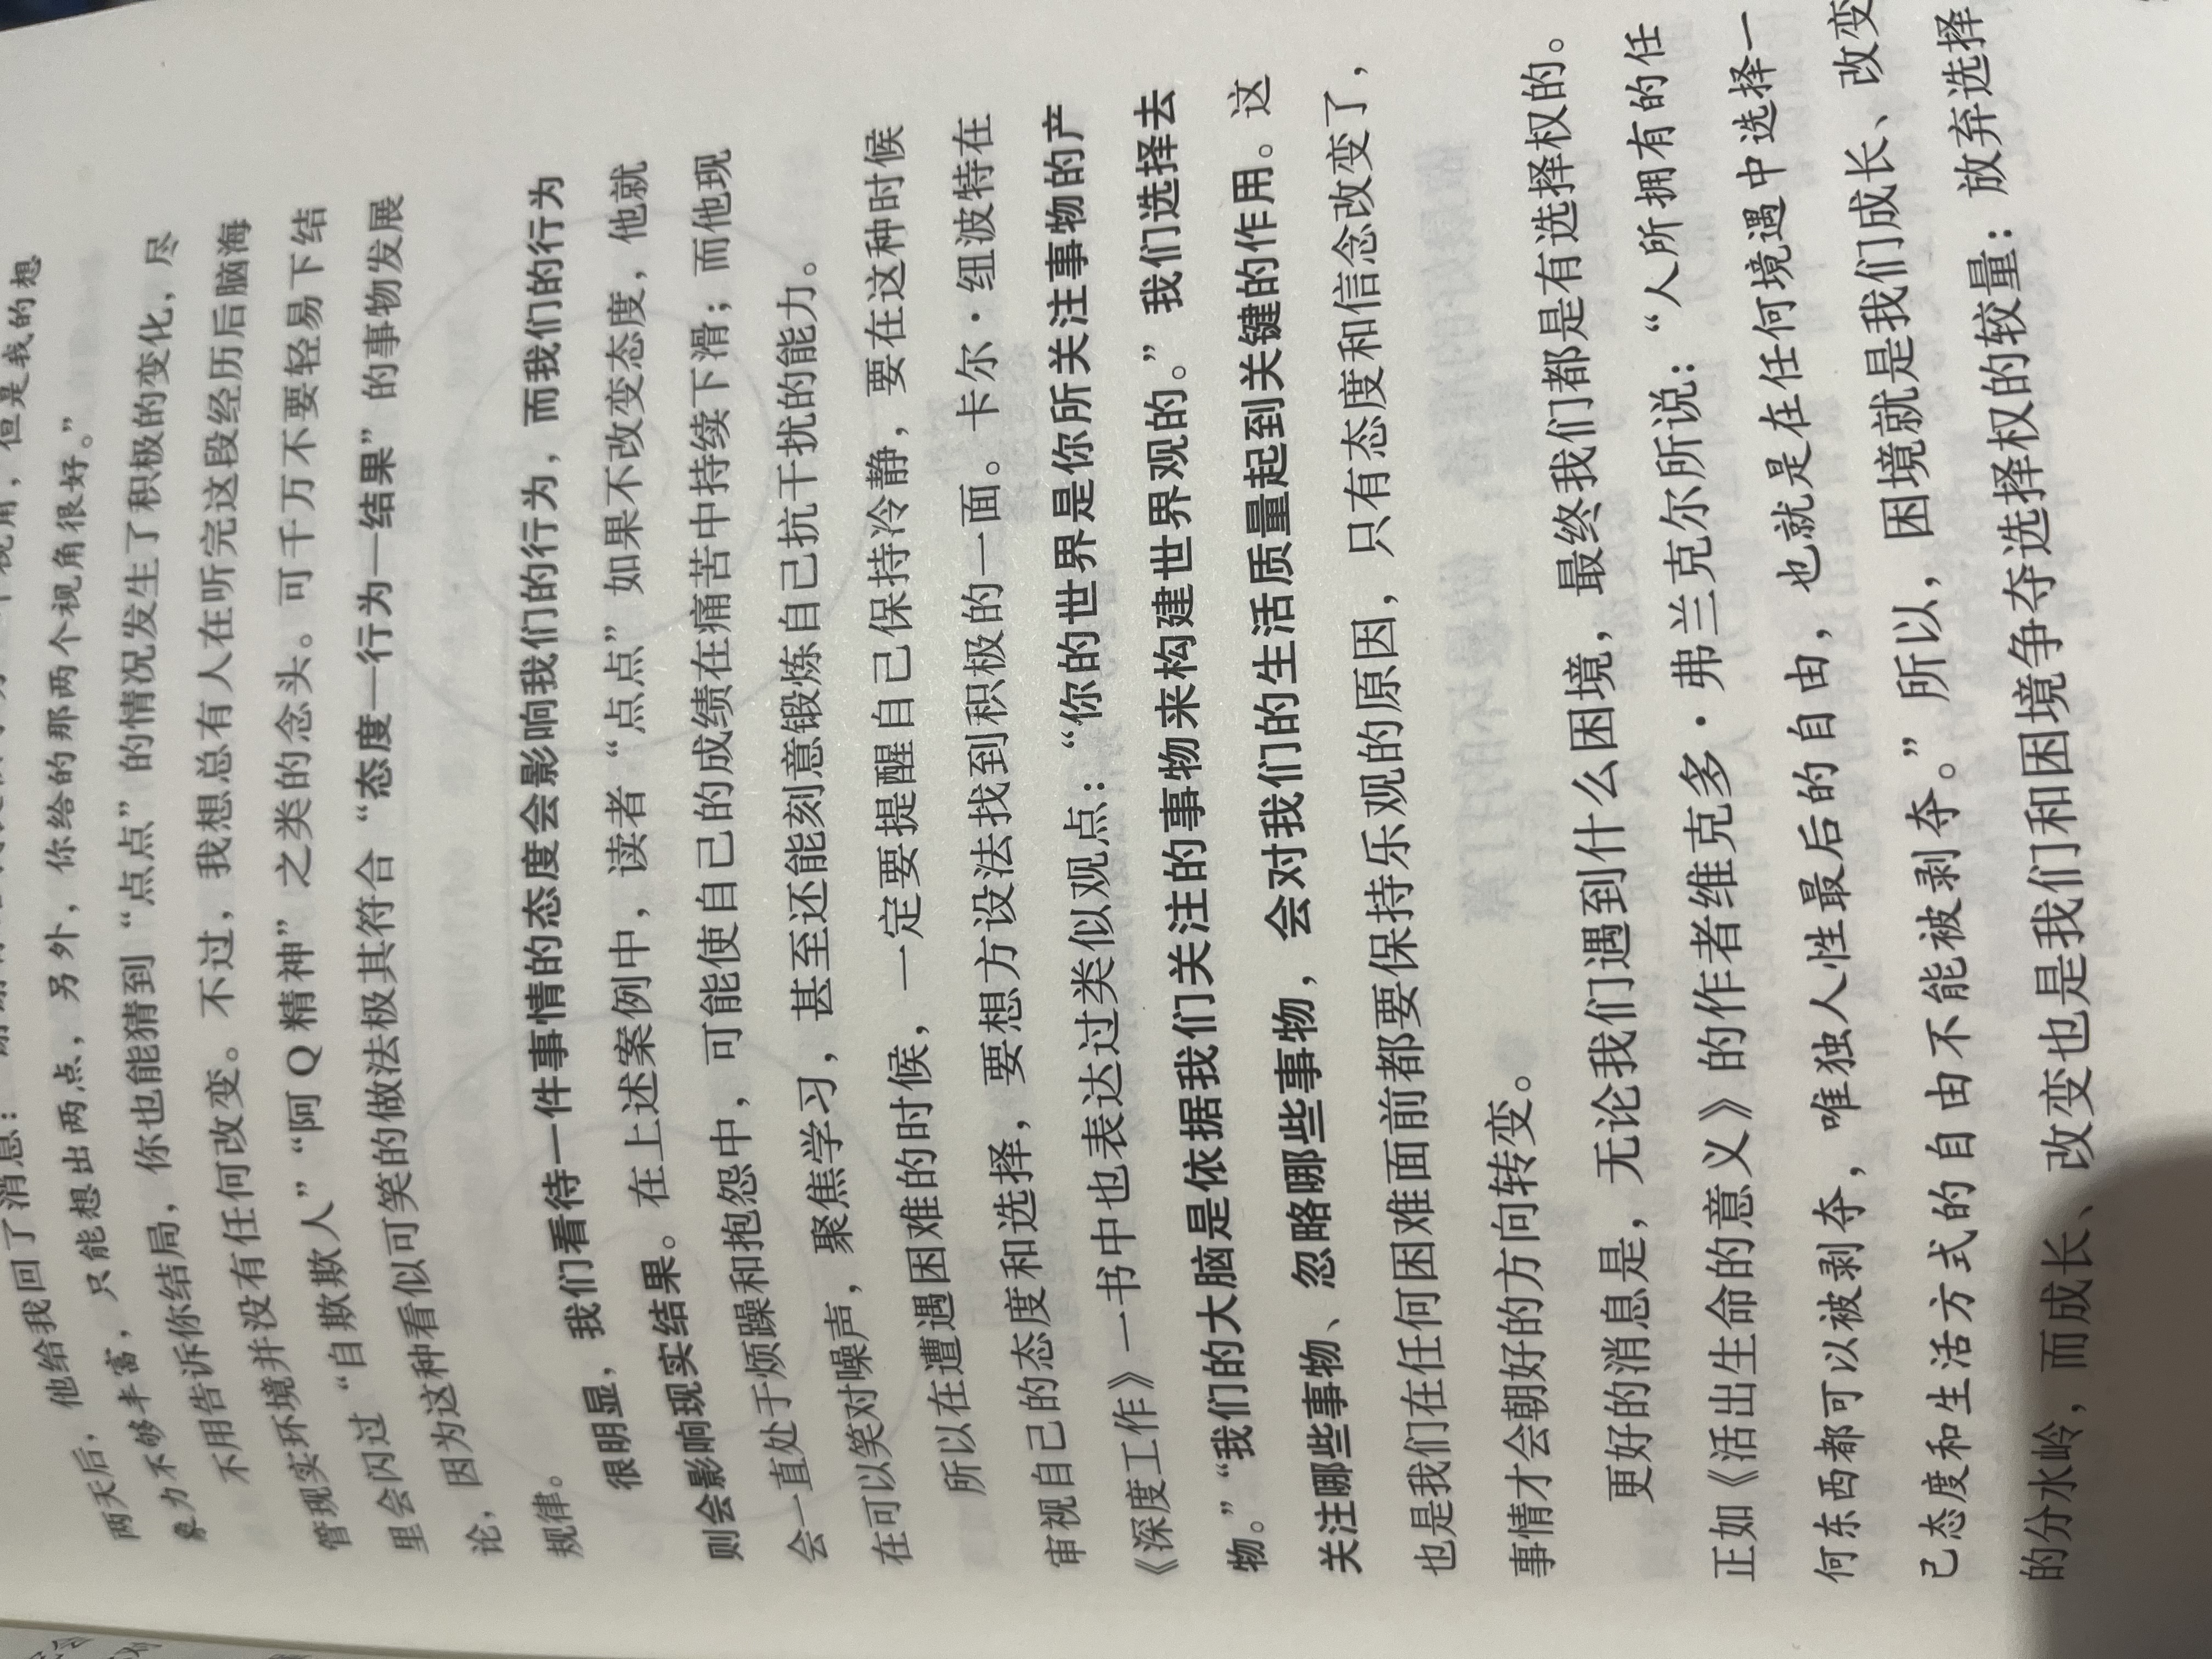 两天后，他给我回了消息：
象力不够丰富，只能想出两点，另外，你给的那两个视角很好。”
不用告诉你结局，你也能猜到“点点”的情况发生了积极的变化，尽
管现实环境并没有任何改变。不过，我想总有人在听完这段经历后脑海
里会闪过“自欺欺人”“阿Q精神”之类的念头。可千万不要轻易下结
论，因为这种看似可笑的做法极其符合“态度—行为—结果”的事物发展
规律。
很明显，我们看待一件事情的态度会影响我们的行为，而我们的行为
则会影响现实结果。在上述案例中，读者“点点”如果不改变态度，他就
会一直处于烦躁和抱怨中，可能使自己的成绩在痛苦中持续下滑；而他现
在可以笑对噪声，聚焦学习，甚至还能刻意锻炼自己抗干扰的能力。
所以在遭遇困难的时候，一定要提醒自己保持冷静，要在这种时候
审视自己的态度和选择，要想方设法找到积极的一面。卡尔·纽波特在
《深度工作》一书中也表达过类似观点：“你的世界是你所关注事物的产
物。”“我们的大脑是依据我们关注的事物来构建世界观的。”我们选择去
关注哪些事物、忽略哪些事物，会对我们的生活质量起到关键的作用。这
也是我们在任何困难面前都要保持乐观的原因，只有态度和信念改变了，
事情才会朝好的方向转变。
更好的消息是，无论我们遇到什么困境，最终我们都是有选择权的。
正如《活出生命的意义》的作者维克多·弗兰克尔所说：“人所拥有的任
何东西都可以被剥夺，唯独人性最后的自由，也就是在任何境遇中选择一
己态度和生活方式的自由不能被剥夺。”所以，困境就是我们成长、改变
的分水岭，而成长、改变也是我们和困境争夺选择权的较量：放弃选择